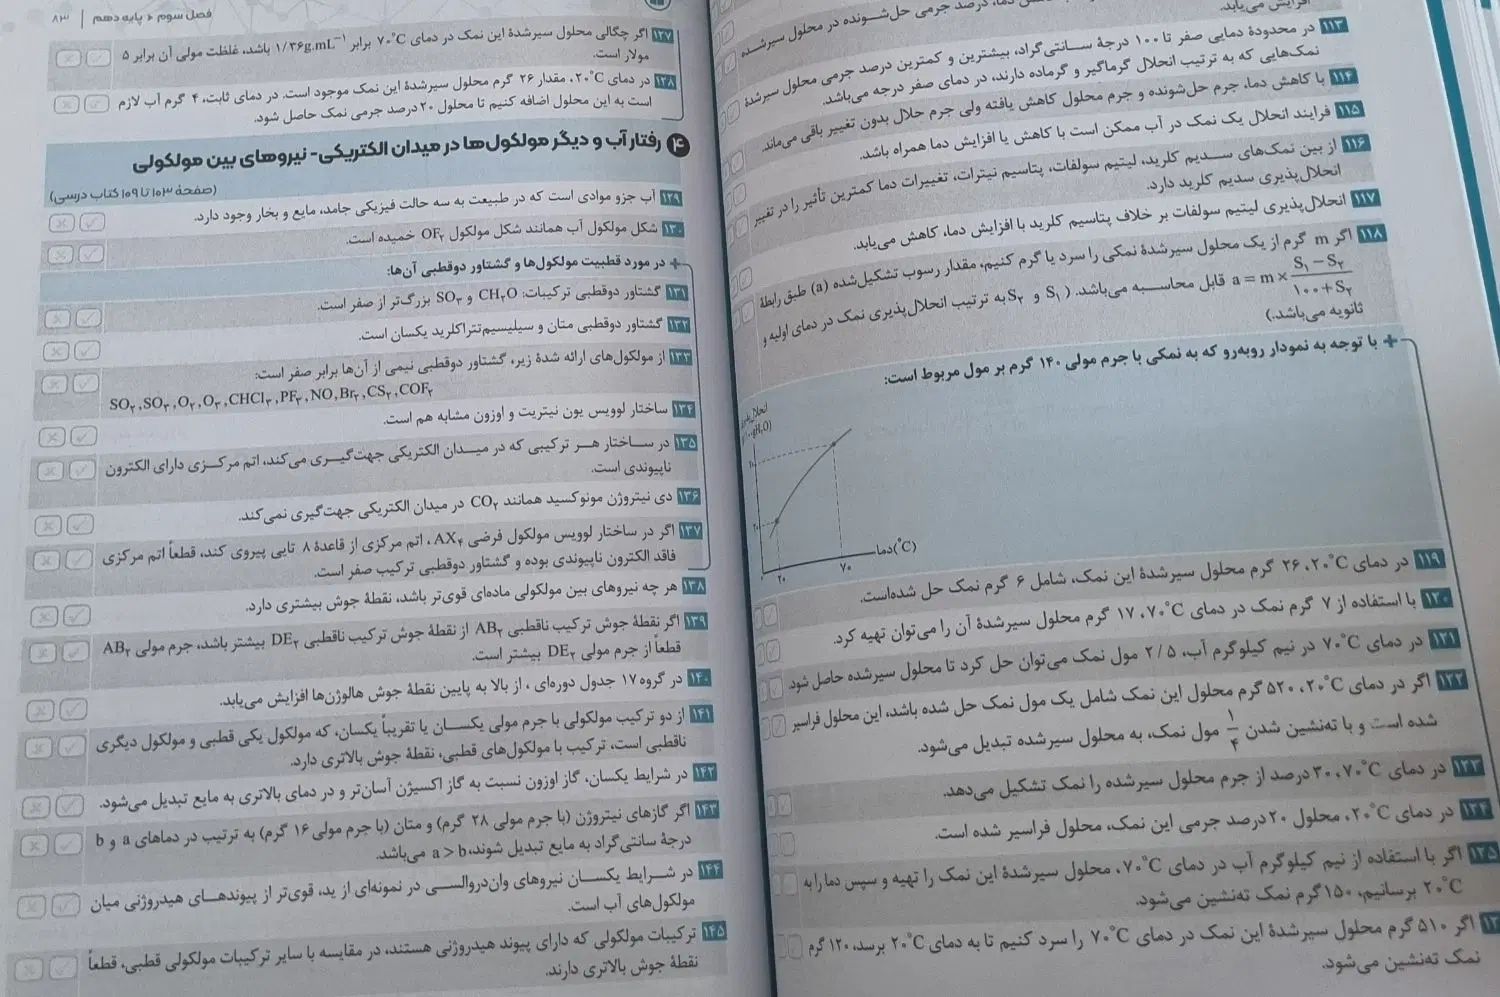 افزایش می‌یابد.
۱۱۳ در محدودهٔ دمایی صفر تا ۱۰۰ درجهٔ سانتی‌گراد، بیشترین و کمترین درصد جرمی محلول سیرشدهٔ
نمک‌هایی که به ترتیب انحلال گرماگیر و گرماده دارند، در دمای صفر درجه می‌باشد.
۱۱۴ با کاهش دما، جرم حل‌شونده و جرم محلول کاهش یافته ولی جرم حلال بدون تغییر باقی می‌ماند.
۱۱۵ فرایند انحلال یک نمک در آب ممکن است با کاهش یا افزایش دما همراه باشد.
۱۱۶ از بین نمک‌های سدیم کلرید، لیتیم سولفات، پتاسیم نیترات، تغییرات دما کمترین تأثیر را در تغییر
انحلال‌پذیری سدیم کلرید دارد.
۱۱۷ انحلال‌پذیری لیتیم سولفات بر خلاف پتاسیم کلرید با افزایش دما، کاهش می‌یابد.
۱۱۸ اگر m گرم از یک محلول سیرشدهٔ نمکی را سرد یا گرم کنیم، مقدار رسوب تشکیل‌شده (a) طبق رابطهٔ
a = m × (S₁ − S₂)/(۱۰۰ + S₂) قابل محاسبه می‌باشد. (S₁ و S₂ به ترتیب انحلال‌پذیری نمک در دمای اولیه و
ثانویه می‌باشد.)
+ با توجه به نمودار روبه‌رو که به نمکی با جرم مولی ۱۴۰ گرم بر مول مربوط است:
دما(°C)
۲۰
۷۰
۱۱۹ در دمای ۲۰°C، ۲۶ گرم محلول سیرشدهٔ این نمک، شامل ۶ گرم نمک حل شده‌است.
۱۲۰ با استفاده از ۷ گرم نمک در دمای ۷۰°C، ۱۷ گرم محلول سیرشدهٔ آن را می‌توان تهیه کرد.
۱۲۱ در دمای ۷۰°C در نیم کیلوگرم آب، ۲/۵ مول نمک می‌توان حل کرد تا محلول سیرشده حاصل شود.
۱۲۲ اگر در دمای ۲۰°C، ۵۲۰ گرم محلول این نمک شامل یک مول نمک حل شده باشد، این محلول فراسیر
شده است و با ته‌نشین شدن ۱/۴ مول نمک، به محلول سیرشده تبدیل می‌شود.
۱۲۳ در دمای ۷۰°C، ۳۰ درصد از جرم محلول سیرشده را نمک تشکیل می‌دهد.
۱۲۴ در دمای ۲۰°C، محلول ۲۰ درصد جرمی این نمک، محلول فراسیر شده است.
۱۲۵ اگر با استفاده از نیم کیلوگرم آب در دمای ۷۰°C، محلول سیرشدهٔ این نمک را تهیه و سپس دما را به
۲۰°C برسانیم، ۱۵۰ گرم نمک ته‌نشین می‌شود.
اگر ۵۱۰ گرم محلول سیرشدهٔ این نمک در دمای ۷۰°C را سرد کنیم تا به دمای ۲۰°C برسد، ۱۲۰ گرم
نمک ته‌نشین می‌شود.
فصل سوم • پایه دهم | ۸۳
۱۲۷ اگر چگالی محلول سیرشدهٔ این نمک در دمای ۷۰°C برابر ۱/۳۶g.mL⁻¹ باشد، غلظت مولی آن برابر ۵
مولار است.
۱۲۸ در دمای ۲۰°C، مقدار ۲۶ گرم محلول سیرشدهٔ این نمک موجود است. در دمای ثابت، ۴ گرم آب لازم
است به این محلول اضافه کنیم تا محلول ۲۰ درصد جرمی نمک حاصل شود.
۴ رفتار آب و دیگر مولکول‌ها در میدان الکتریکی- نیروهای بین مولکولی
(صفحهٔ ۱۰۳ تا ۱۰۹ کتاب درسی)
۱۲۹ آب جزو موادی است که در طبیعت به سه حالت فیزیکی جامد، مایع و بخار وجود دارد.
۱۳۰ شکل مولکول آب همانند شکل مولکول OF₂ خمیده است.
+ در مورد قطبیت مولکول‌ها و گشتاور دوقطبی آن‌ها:
۱۳۱ گشتاور دوقطبی ترکیبات: CH₂O و SO₃ بزرگ‌تر از صفر است.
۱۳۲ گشتاور دوقطبی متان و سیلیسیم‌تتراکلرید یکسان است.
۱۳۳ از مولکول‌های ارائه شدهٔ زیر، گشتاور دوقطبی نیمی از آن‌ها برابر صفر است:
SO₂, SO₃, O₂, O₃, CHCl₃, PF₃, NO, Br₂, CS₂, COF₂
۱۳۴ ساختار لوویس یون نیتریت و اوزون مشابه هم است.
۱۳۵ در ساختار هر ترکیبی که در میدان الکتریکی جهت‌گیری می‌کند، اتم مرکزی دارای الکترون
ناپیوندی است.
۱۳۶ دی نیتروژن مونوکسید همانند CO₂ در میدان الکتریکی جهت‌گیری نمی‌کند.
۱۳۷ اگر در ساختار لوویس مولکول فرضی AX₄، اتم مرکزی از قاعدهٔ ۸ تایی پیروی کند، قطعاً اتم مرکزی
فاقد الکترون ناپیوندی بوده و گشتاور دوقطبی ترکیب صفر است.
۱۳۸ هر چه نیروهای بین مولکولی ماده‌ای قوی‌تر باشد، نقطهٔ جوش بیشتری دارد.
۱۳۹ اگر نقطهٔ جوش ترکیب ناقطبی AB₂ از نقطهٔ جوش ترکیب ناقطبی DE₂ بیشتر باشد، جرم مولی AB₂
قطعاً از جرم مولی DE₂ بیشتر است.
۱۴۰ در گروه ۱۷ جدول دوره‌ای ، از بالا به پایین نقطهٔ جوش هالوژن‌ها افزایش می‌یابد.
۱۴۱ از دو ترکیب مولکولی با جرم مولی یکسان یا تقریباً یکسان، که مولکول یکی قطبی و مولکول دیگری
ناقطبی است، ترکیب با مولکول‌های قطبی، نقطهٔ جوش بالاتری دارد.
۱۴۲ در شرایط یکسان، گاز اوزون نسبت به گاز اکسیژن آسان‌تر و در دمای بالاتری به مایع تبدیل می‌شود.
۱۴۳ اگر گازهای نیتروژن (با جرم مولی ۲۸ گرم) و متان (با جرم مولی ۱۶ گرم) به ترتیب در دماهای a و b
درجهٔ سانتی‌گراد به مایع تبدیل شوند، a > b می‌باشد.
۱۴۴ در شرایط یکسان نیروهای وان‌دروالسی در نمونه‌ای از ید، قوی‌تر از پیوندهای هیدروژنی میان
مولکول‌های آب است.
۱۴۵ ترکیبات مولکولی که دارای پیوند هیدروژنی هستند، در مقایسه با سایر ترکیبات مولکولی قطبی، قطعاً
نقطهٔ جوش بالاتری دارند.